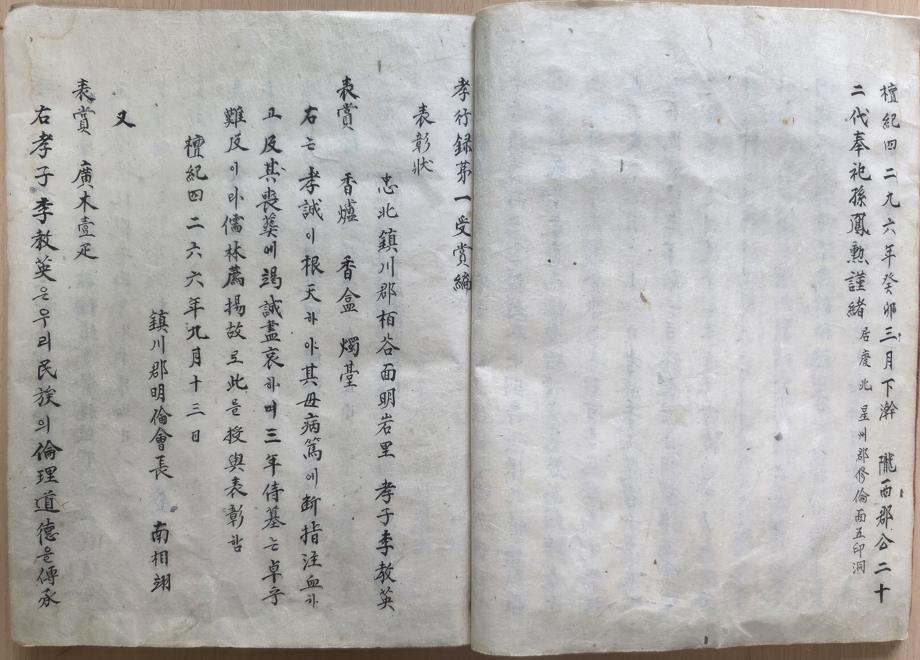 檀紀四二九六年癸卯三月下澣 隴西郡公二十
二代奉祀孫鳳勲謹緖 居慶北星州郡修倫面五印洞
孝行録苐一受賞編
表彰狀
忠北鎮川郡栢谷面明岩里 孝子李教英
表賞 香爐 香盒 燭臺
右는 孝誠이根天하야其母病篤에断指注血하
고及其喪葬에竭誠盡哀하며三年侍墓는卓乎
難及이라儒林薦揚故로此를授與表彰함
檀紀四二六六年九月十三日
鎮川郡明倫會長 南相翊
又
表賞 廣木壹疋
右孝子李教英은우리民族의倫理道德을傳承